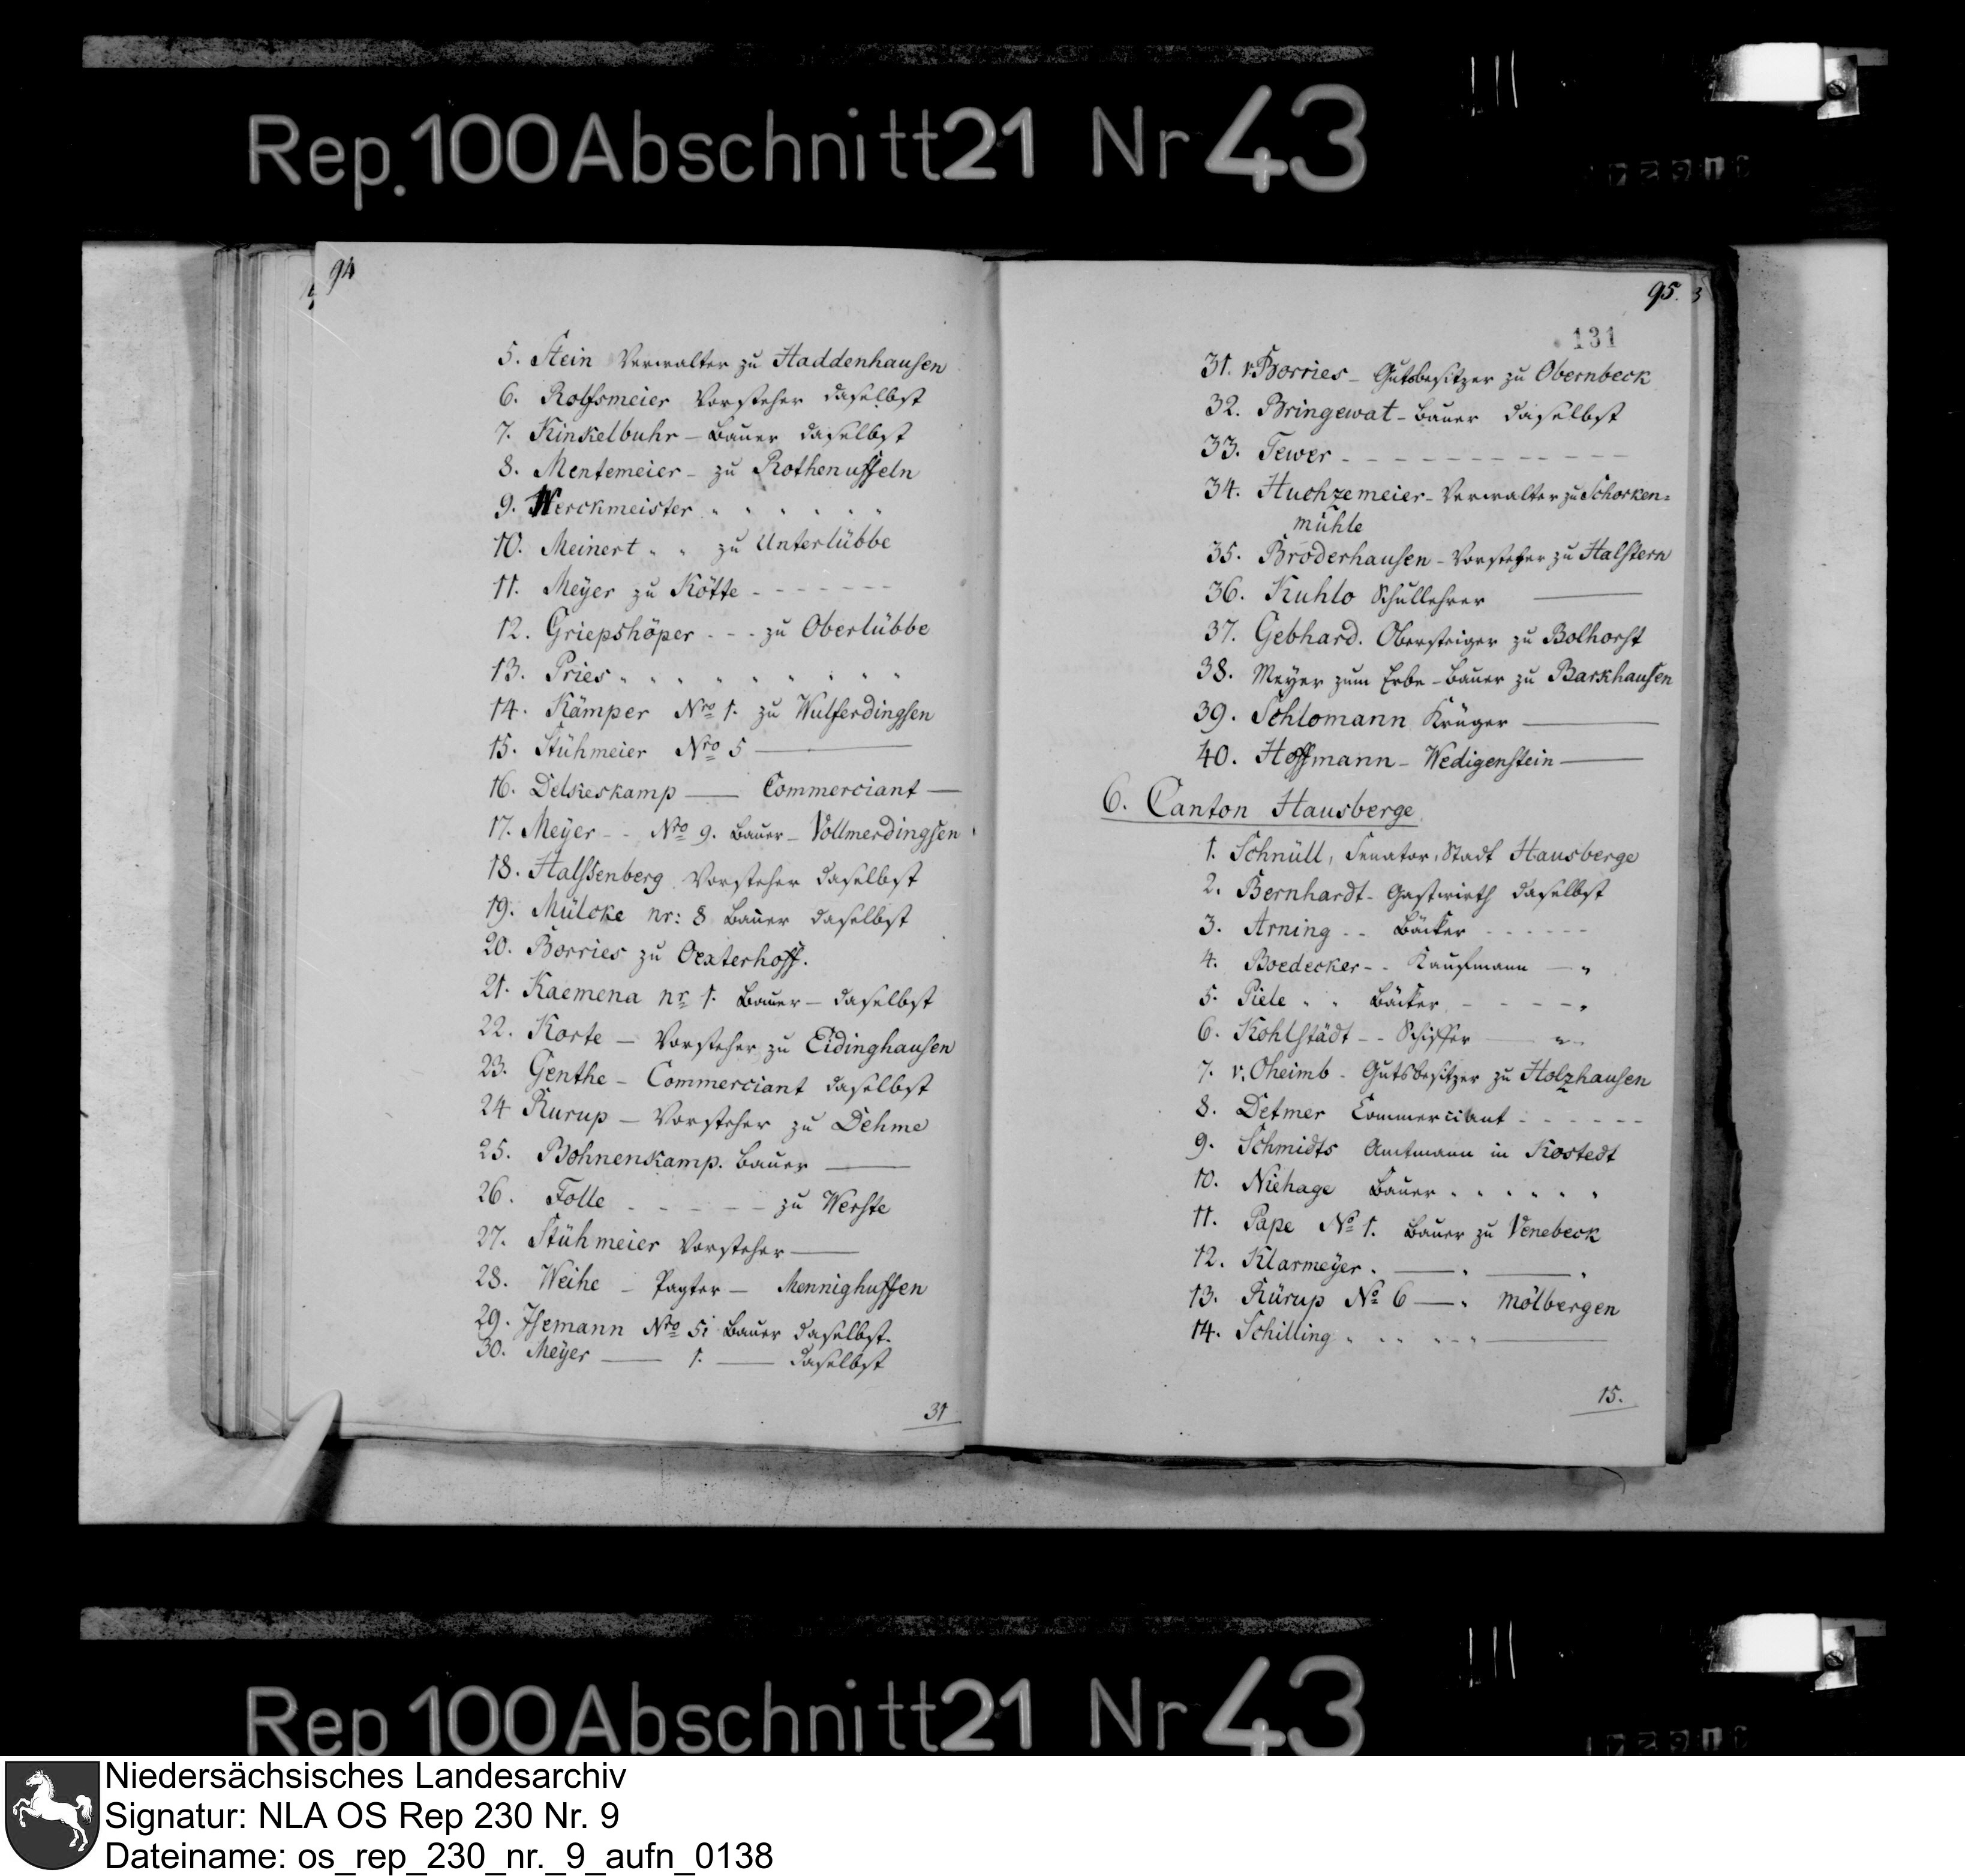 Rep. 100 Abschnitt 21 Nr 43
94
5. Stein Verwalter zu Haddenhausen
6. Rolfsmeier Vorsteher daselbst
7. Kinkelbuhr - Bauer daselbst
8. Mentemeier - zu Rothenuffeln
9. Werckmeister " " " " " "
10. Meinert " " zu Unterlübbe
11. Meyer zu Kötte - - - - - - -
12. Griepshöper - - - zu Oberlübbe
13. Pries " " " " " " " " "
14. Kämper Nro 1. zu Wulferdingsen
15. Stühmeier Nro 5 —
16. Delkeskamp — Commerciant —
17. Meyer - - Nro 9. Bauer - Vollmerdingsen
18. Halssenberg Vorsteher daselbst
19. Mülcke nr: 8 Bauer daselbst
20. Borries zu Oexterhoff.
21. Kaemena nr 1. Bauer - daselbst
22. Korte - Vorsteher zu Eidinghausen
23. Genthe - Commerciant daselbst
24 Rurup - Vorsteher zu Dehme
25. Bohnenkamp. Bauer —
26. Folle - - - - - zu Werste
27. Stühmeier Vorsteher —
28. Weihe - Pagter - Mennighuffen
29. Isemann Nro 51 Bauer daselbst.
30. Meyer — 1. — daselbst
31
95.
131
31. v. Borries - Gutsbesitzer zu Obernbeck
32. Bringewat - Bauer daselbst
33. Tewer - - - - - - - - - - - -
34. Huchzemeier - Verwalter zu Schorken=
mühle
35. Broderhausen - Vorsteher zu Halstern
36. Kuhlo Schullehrer —
37. Gebhard. Obersteiger zu Bolhorst
38. Meyer zum Erbe - Bauer zu Barkhausen
39. Schlomann Krüger —
40. Hoffmann - Wedigenstein —
6. Canton Hausberge
1. Schnüll, Senator, Stadt Hausberge
2. Bernhardt - Gastwirth daselbst
3. Arning - - Bäcker - - - - - -
4. Boedecker - - Kaufmann — "
5. Piele " " Bäcker - - - - - "
6. Kohlstädt - - Schiffer — "
7. v. Oheimb - Gutsbesitzer zu Holzhausen
8. Detmer Commerciant - - - - - -
9. Schmidts Amtmann in Kostedt
10. Niehage Bauer " " " " " "
11. Pape No 1. Bauer zu Venebeck
12. Klarmeyer. — " — "
13. Rürup No 6 — " Mölbergen
14. Schilling " " " - " —
15.
Rep 100 Abschnitt 21 Nr 43
Niedersächsisches Landesarchiv
Signatur: NLA OS Rep 230 Nr. 9
Dateiname: os_rep_230_nr._9_aufn_0138